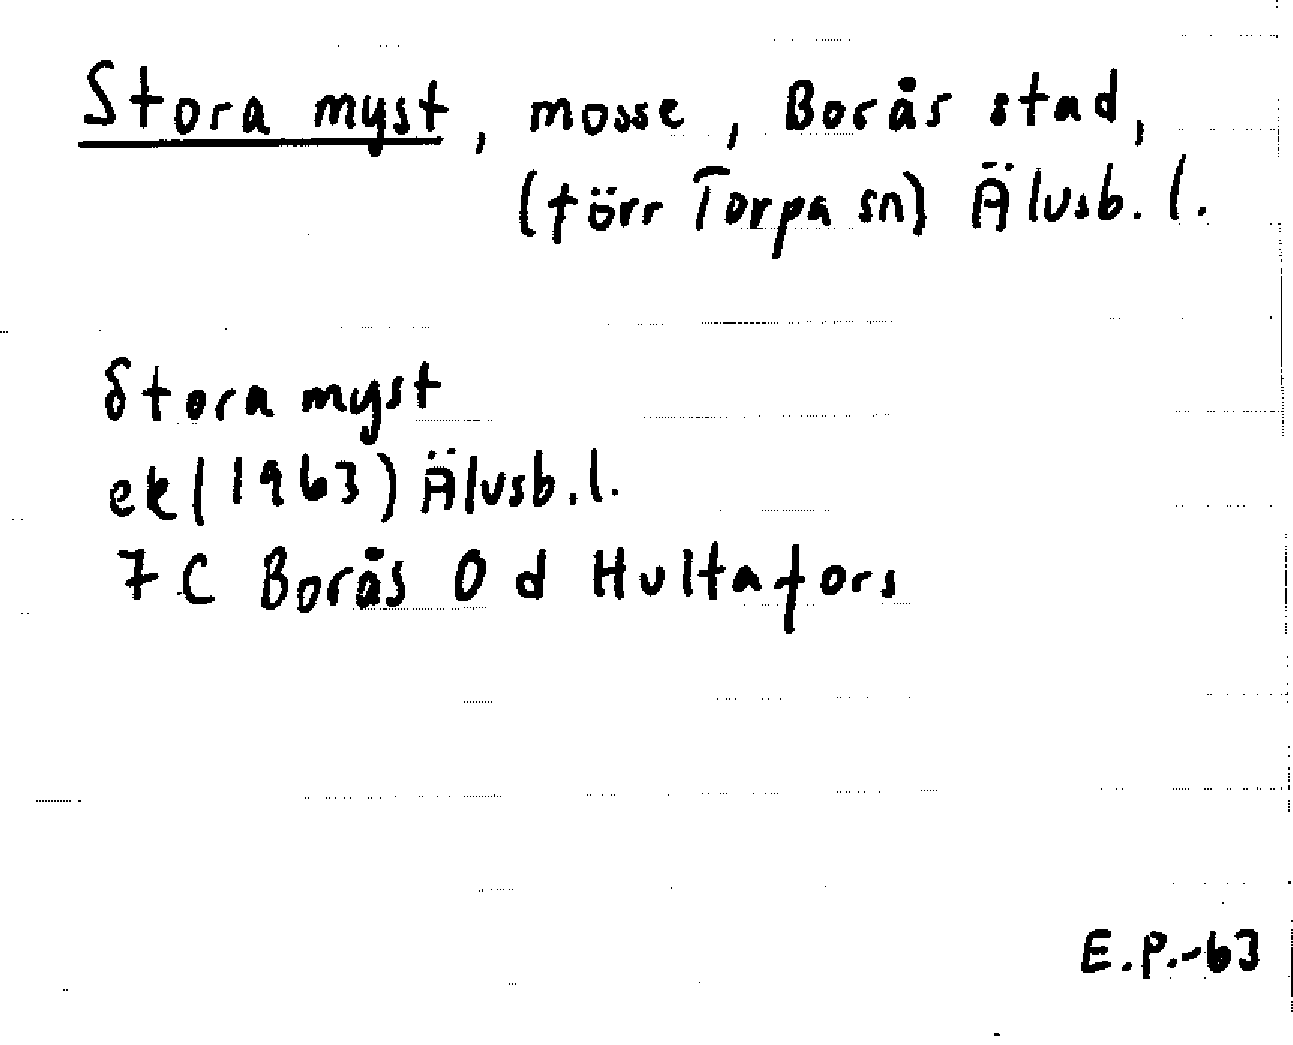 Stora myst, mosse, Borås stad,
(förr Torpa sn) Älvsb. l.
Stora myst
ek (1963) Älvsb. l.
7 C Borås O d Hultafors
E.P.-63